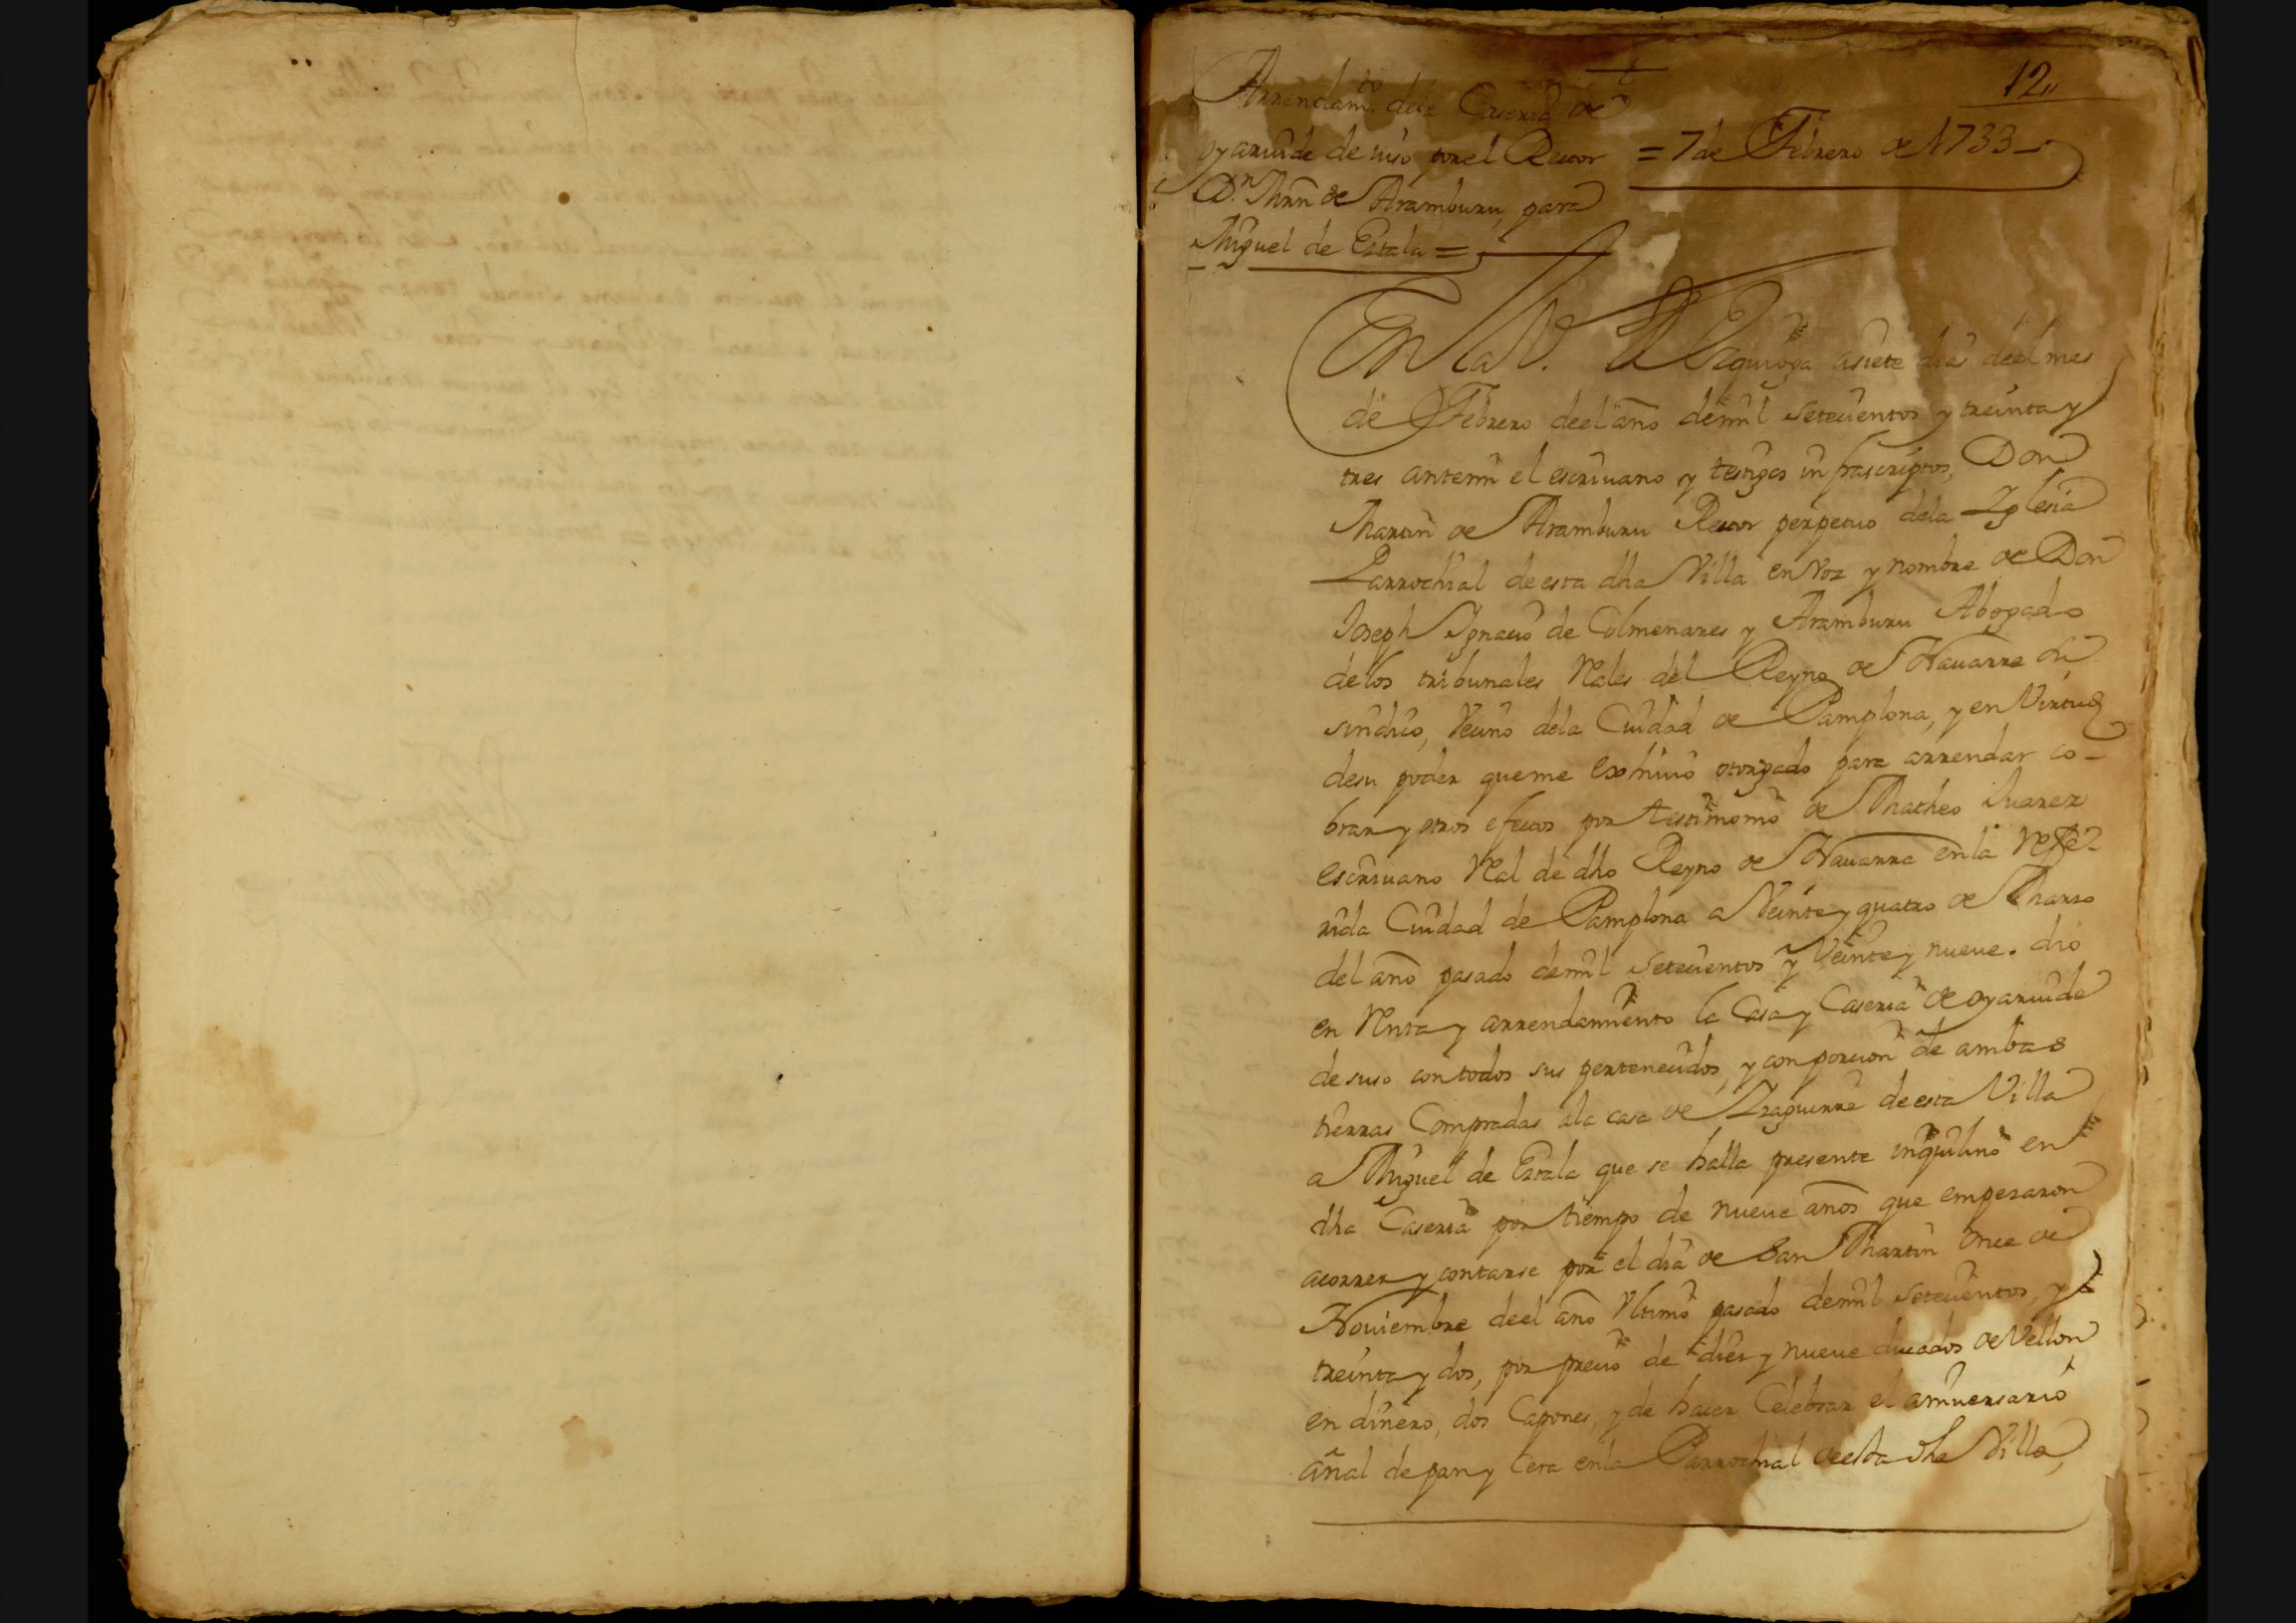 12,,
Arrendam.to dela Caseria de
oyaruide de suso por el Rector = 7 de Febrero de 1733 =
D.n Mrñ de Aramburu, para
Miguel de Estala =
En la V.ª de Segurã a siete dias de el mes
de Febrero de el año de mil setecientos y treinta y
tres antemi el escriuano y testigos infrascriptos, Don
Martin de Aramburu Rector perpetuo dela Iglesia
Parrochial de esta dha Villa en Voz y nombre de Don
Joseph Ignacio de Colmenares y Aramburu Abogado
delos tribunales Rales del Reyno de Nauarra su
sindico, Vecino dela Ciudad de Pamplona, y en Virtud
desu poder que me exhiuio otorgado para arrendar co-
brar y otros efectos por testimonio de Matheo Juarez
escriuano Ral de dho Reyno de Nauarra en la Refe-
rida Ciudad de Pamplona a Veinte y quatro de Marzo
del año pasado de mil setecientos y Veinte y nueue. dio
en Renta y arrendamiento la Casa y Caseria de oyaruide
de suso con todos sus pertenecidos, y con porcion de ambas
tierras Compradas ala casa de Izaguirre de esta Villa
a Miguel de Estala que se halla presente inquilino en
dha Caseria por tiempo de nueue años que empezaron
acorrer y contarse por el dia de San Martin once de
Nouiembre de el año Vltimo pasado de mil setecientos, y
treinta y dos, por precio de diez y nueue ducados de Vellon
en dinero, dos Capones, y de hacer Celebrar el aniuersario
añal de pan y cera en la Parrochial de esta dha Villa,